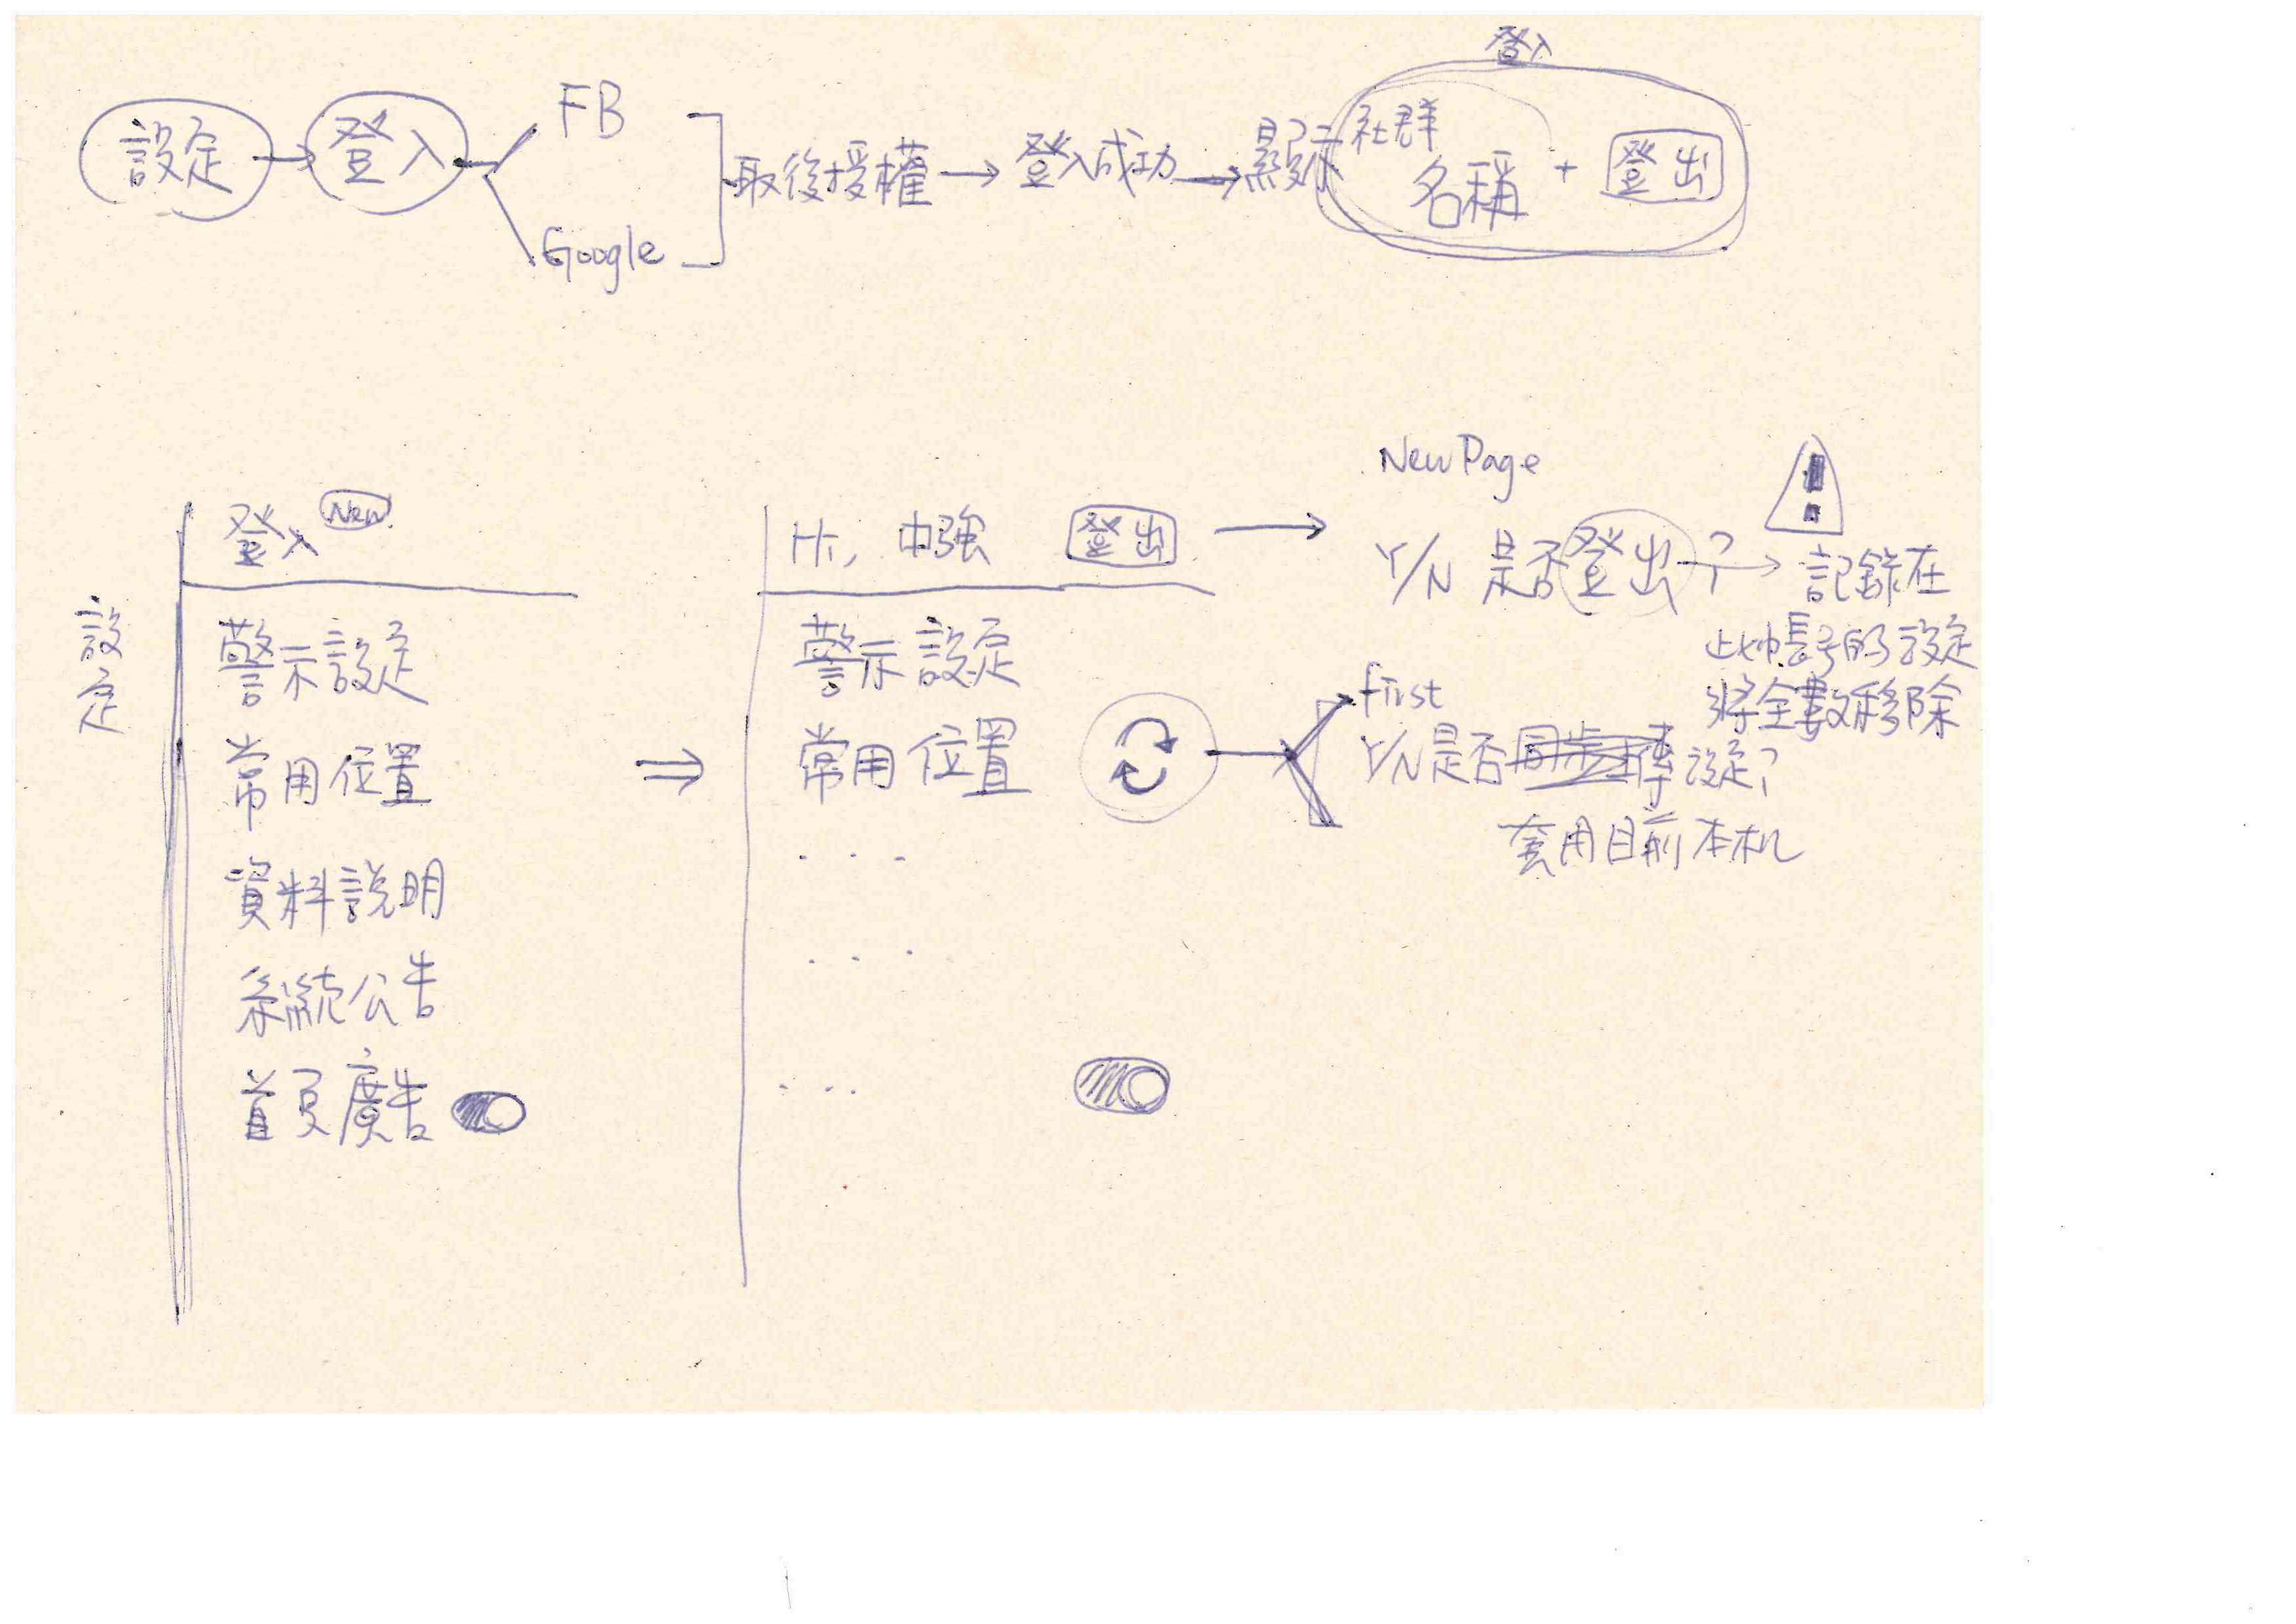 登入
設定 → 登入
FB
Google
取後授權 → 登入成功 → 顯示 社群
名稱 + 登出
設定
登入 New
警示設定
常用位置
資料說明
系統公告
首頁廣告
⇒
Hi, 中強 登出 →
警示設定
常用位置
...
...
...
New Page
Y/N 是否登出? →
記錄在
此帳号的設定
將全數移除
first
Y/N 是否同步上傳設定?
套用目前本机